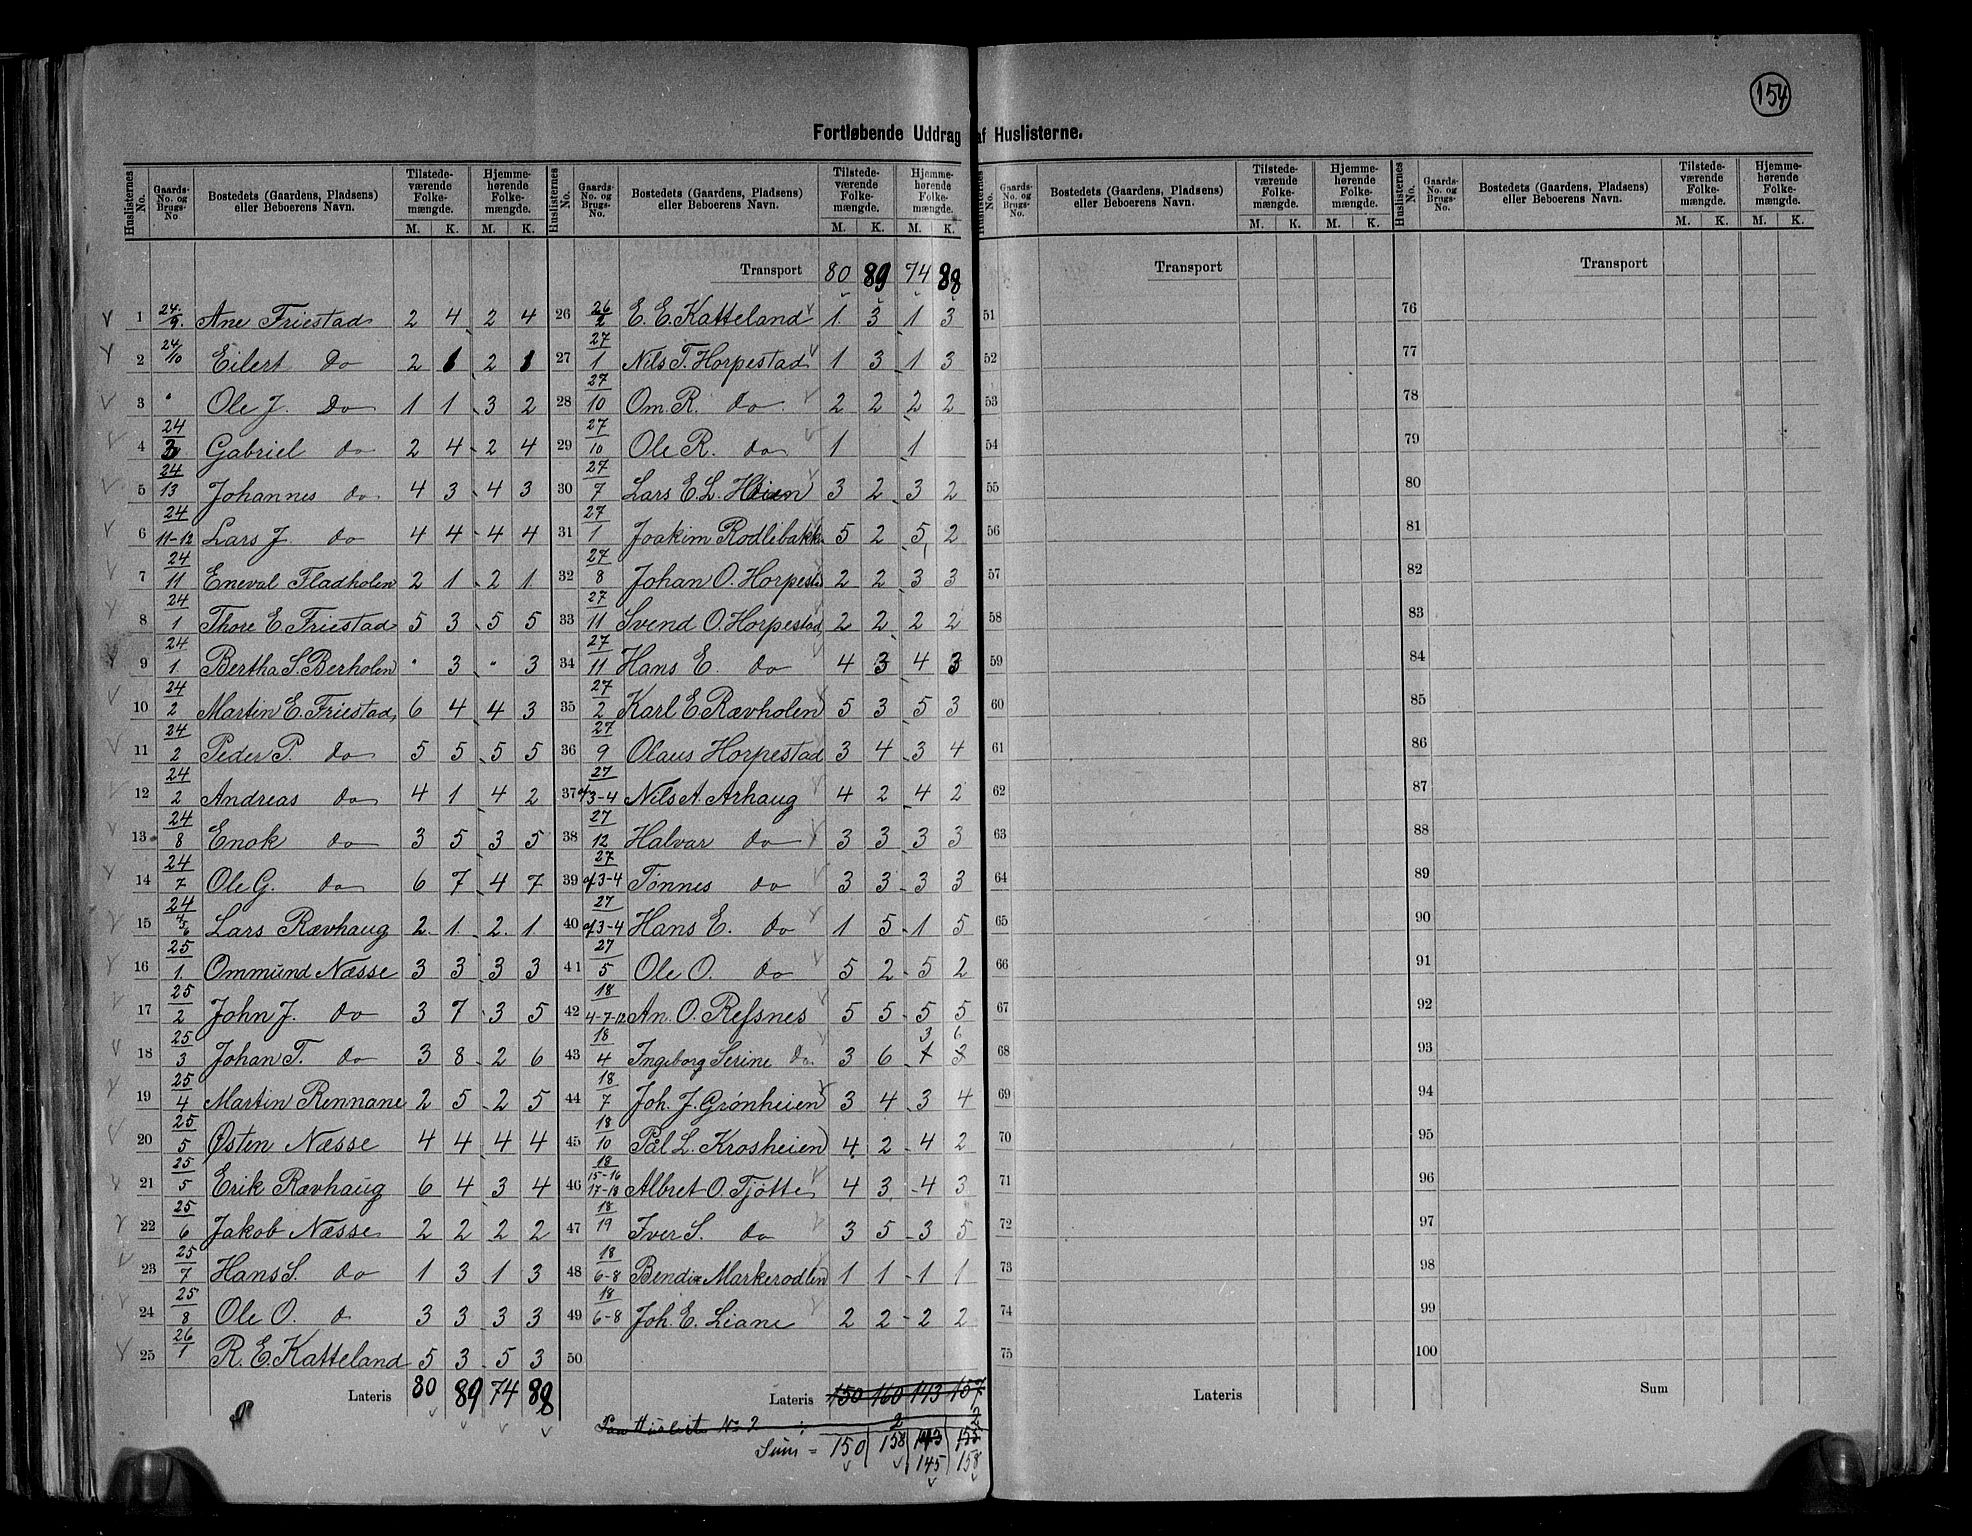 154
Fortløbende Uddrag af Huslisterne.
Huslisternes No. | Gaards-No. og Brugs-No. | Bostedets (Gaardens, Pladsens) eller Beboerens Navn. | Tilstedeværende Folkemængde. M. K. | Hjemmehørende Folkemængde. M. K.
1 24/9. Ane Friestad 2 4 2 4
2 24/10 Eilert Do 2 1 2 1
3 " Ole J. Do 1 1 3 2
4 24/3 Gabriel do 2 4 2 4
5 24/13 Johannes do 4 3 4 3
6 24/11-12 Lars J. do 4 4 4 4
7 24/11 Eneval Fladholen 2 1 2 1
8 24/1 Thore E. Friestad 5 3 5 5
9 24/1. Bertha S. Berholen " 3 " 3
10 24/2 Martin E. Friestad 6 4 4 3
11 24/2 Peder P. do 5 5 5 5
12 24/2 Andreas do 4 1 4 2
13 24/8 Enok do 3 5 3 5
14 24/7 Ole G. do 6 7 4 7
15 24/ Lars Rævhaug 2 1 2 1
16 25/1. Ommund Næsse 3 3 3 3
17 25/2 John J. do 3 7 3 5
18 25/3 Johan T. do 3 8 2 6
19 25/4 Martin Rennane 2 5 2 5
20 25/5 Østen Næsse 4 4 4 4
21 25/5 Erik Rævhaug 6 4 3 4
22 25/6 Jakob Næsse 2 2 2 2
23 25/7 Hans S. do 1 3 1 3
24 25/8 Ole O. d 3 3 3 3
25 26/1 R. E. Katteland 5 3 5 3
Lateris 80 89 74 88
Huslisternes No. | Gaards-No. og Brugs-No. | Bostedets (Gaardens, Pladsens) eller Beboerens Navn. | Tilstedeværende Folkemængde. M. K. | Hjemmehørende Folkemængde. M. K.
Transport 80 89 74 88
26 26/2 E. E. Katteland 1 3 1 3
27 27/1 Nils T. Horpestad 1 3 1 3
28 27/10 Om. R. do 2 2 2 2
29 27/10 Ole R. do 1 1
30 27/7 Lars E. L. Hoien 3 2 3 2
31 27/1 Joakim Rodlibakk 5 2 5 2
32 27/8 Johan O. Horpestad 2 2 3 3
33 27/11 Svend O. Horpestad 2 2 2 2
34 27/11 Hans E do 4 3 4 3
35 27/2 Karl E. Rævholen 5 3 5 3
36 27/9 Olaus Horpestad 3 4 3 4
37 27/af 3-4 Nils A. Arhaug 4 2 4 2
38 27/12 Halvar do 3 3 3 3
39 27/af 3-4 Tønnes do 3 3 3 3
40 27/af 3-4 Hans E. do 1 5 1 5
41 27/5 Ole O. do 5 2 5 2
42 18/4-7-12 An. O. Refsnes 5 5 5 5
3 6
43 18/4 Ingeborg Serine do 3 6 1 3
44 18/7 Joh. J. Grønheien 3 4 3 4
45 18/10 Pål L. Krosheien 4 2 4 2
46 18/15-16 17-18 Albret O. Tjøtte 4 3 4 3
47 18/19 Iver S. do 3 5 3 5
48 18/6-8 Bendix Markerodlen 1 1 1 1
49 18/6-8 Joh. E. Liane 2 2 2 2
50
Lateris 150 160 143 157
Paa Husliste No 2 : 2 2
Sum = 150 158 143 155
145 158
Huslisternes No. | Gaards-No. og Brugs-No. | Bostedets (Gaardens, Pladsens) eller Beboerens Navn. | Tilstedeværende Folkemængde. M. K. | Hjemmehørende Folkemængde. M. K.
Transport
51
52
53
54
55
56
57
58
59
60
61
62
63
64
65
66
67
68
69
70
71
72
73
74
75
Lateris
Huslisternes No. | Gaards-No. og Brugs-No. | Bostedets (Gaardens, Pladsens) eller Beboerens Navn. | Tilstedeværende Folkemængde. M. K. | Hjemmehørende Folkemængde. M. K.
Transport
76
77
78
79
80
81
82
83
84
85
86
87
88
89
90
91
92
93
94
95
96
97
98
99
100
Sum